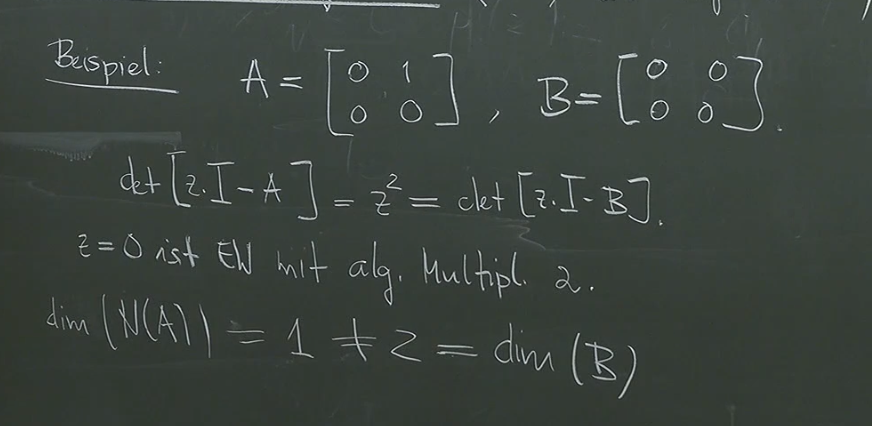 Beispiel: A = [0 1 0 0], B = [0 0 0 0].
det [z.I-A] = z² = det [z.I-B].
z=0 ist EW mit alg. Multipl. 2.
dim (N(A)) = 1 ≠ 2 = dim (B)